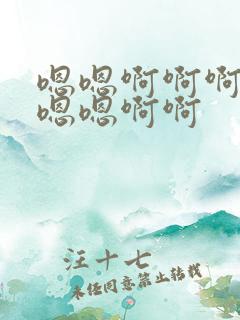 嗯嗯啊啊啊
嗯嗯啊啊
汪十七
未经同意禁止转载